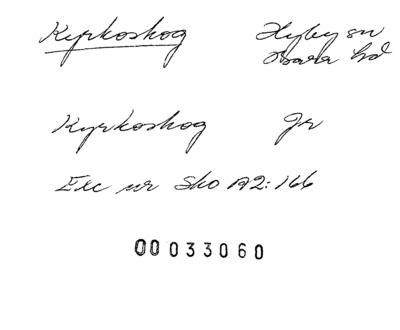 Kyrkoskog Hyby sn
Bara hd
Kyrkoskog Jr
Exc ur Sko A2:166
00033060